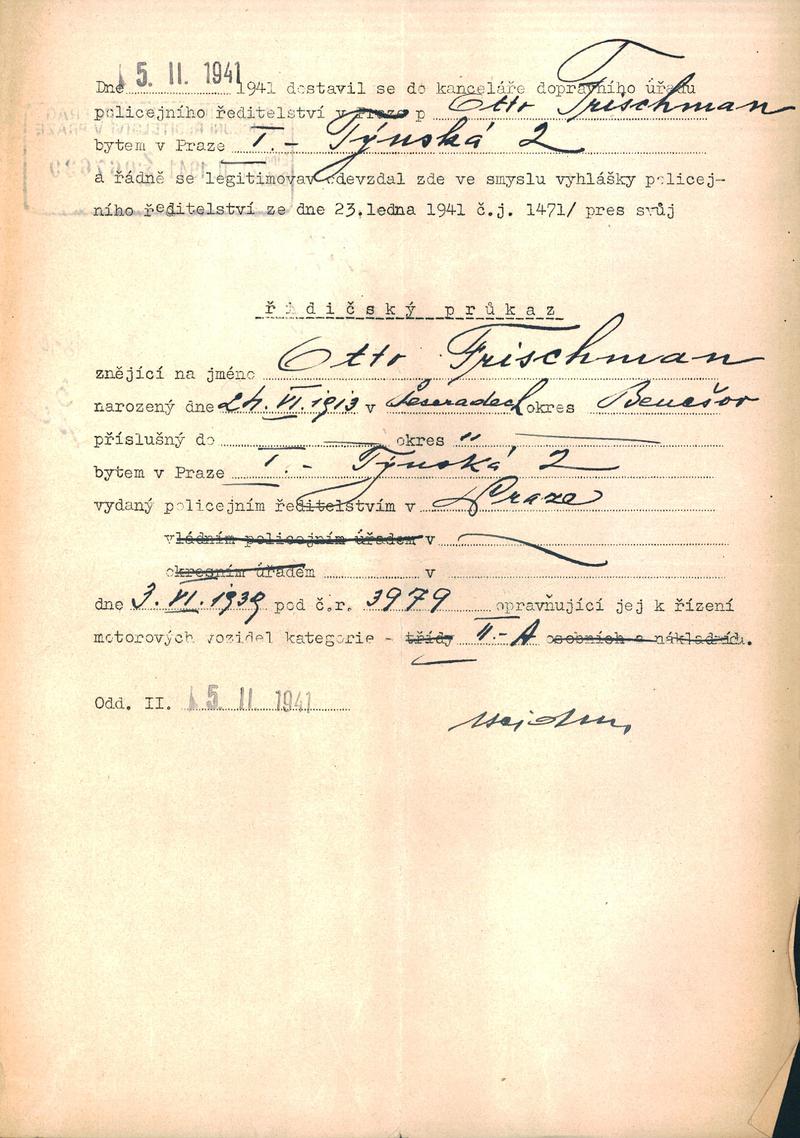 Dne 15. II. 1941 1941 dostavil se do kanceláře dopravního úřadu
policejního ředitelství v Praze p Otto Frischman
bytem v Praze I. - Týnská 2
a řádně se legitimovav odevzdal zde ve smyslu vyhlášky policej-
ního ředitelství ze dne 23.ledna 1941 č.j. 1471/ pres svůj
řidičský průkaz
znějící na jméno Otto Frischman
narozený dne 24. VI. 1913 v okres Benešov
příslušný do okres "
bytem v Praze I. - Týnská 2
vydaný policejním ředitelstvím v Praze
vládním policejním úřadem v
okresním úřadem v
dne 3. VI. 1939 pod č.r. 3979 opravňující jej k řízení
motorových vozidel kategorie - třídy II. - A osobních a nákladních.
Odd. II. 15 II 1941